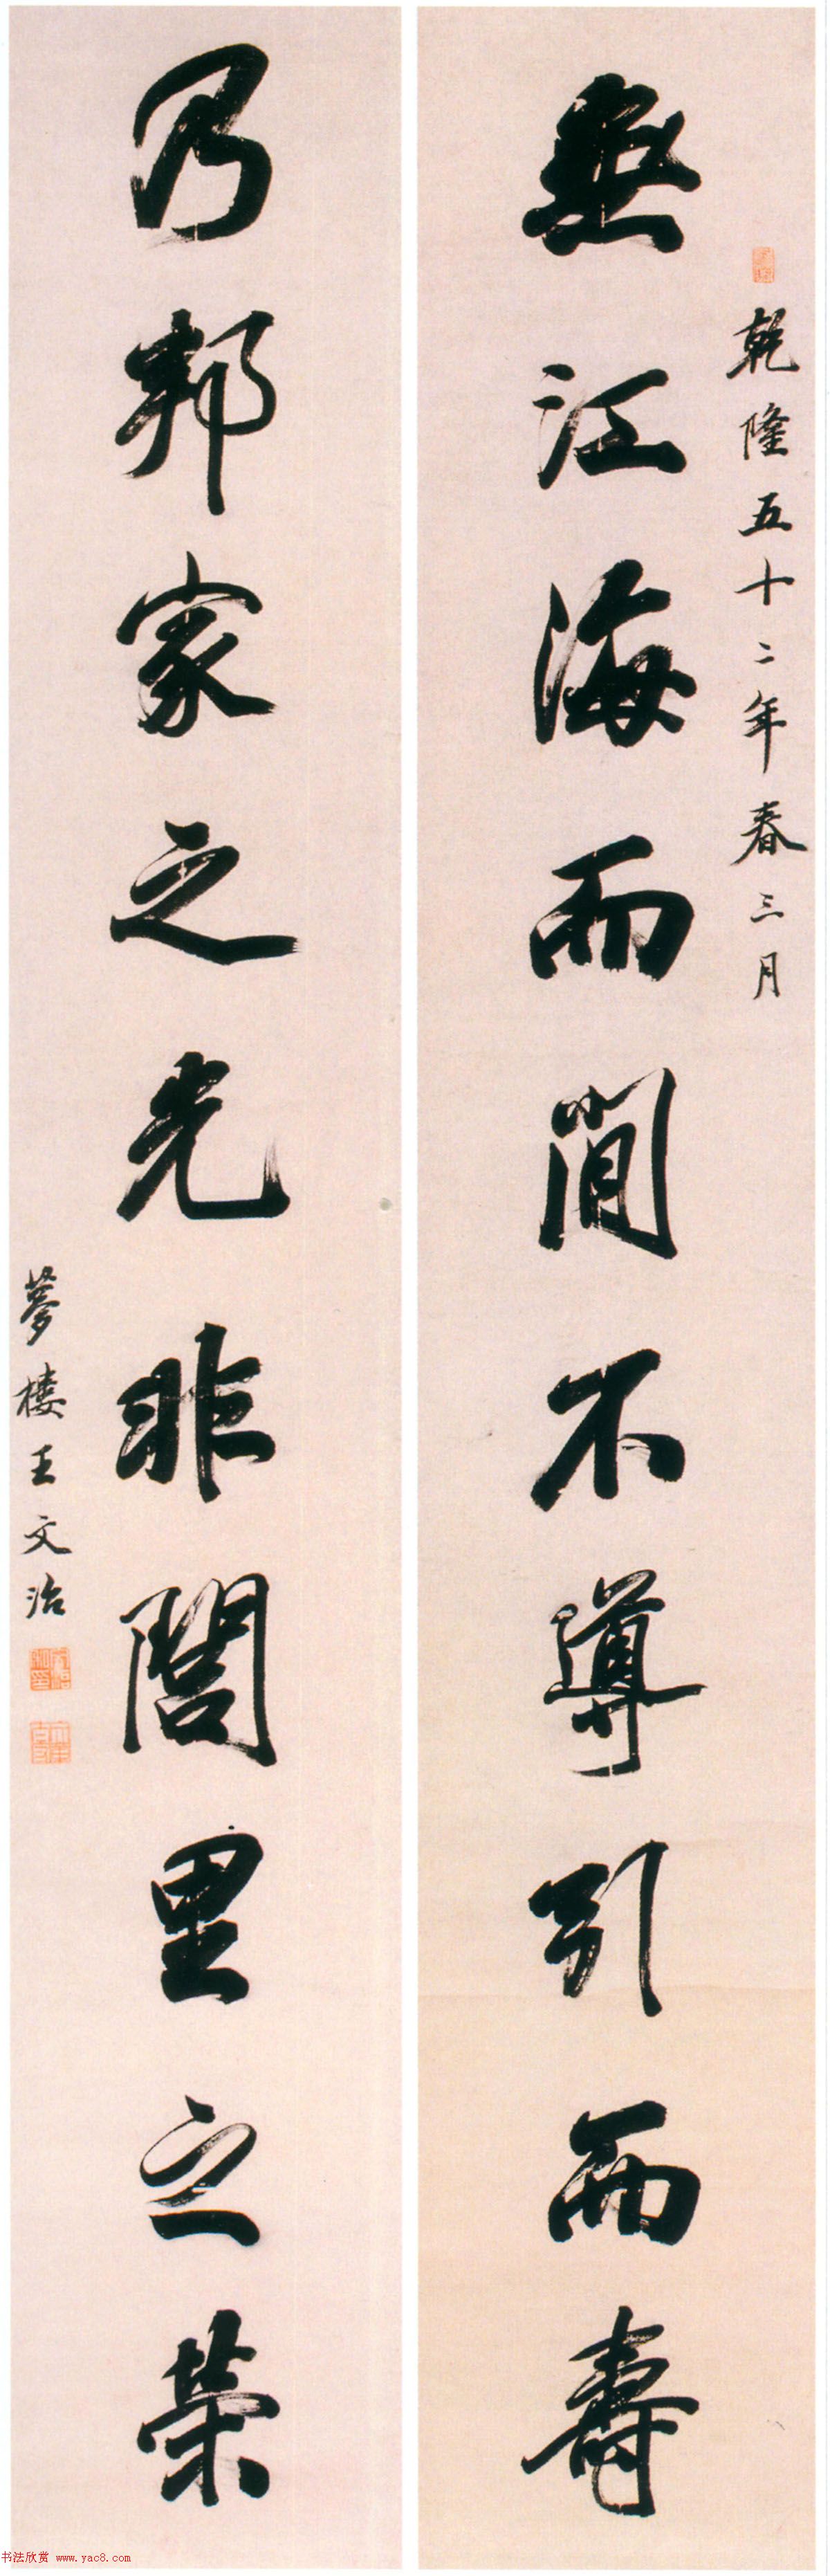 乾隆五十二年春三月
無江海而閒不導引而壽
乃邦家之光非閭里之榮
夢樓王文治
书法欣赏 www.yac8.com